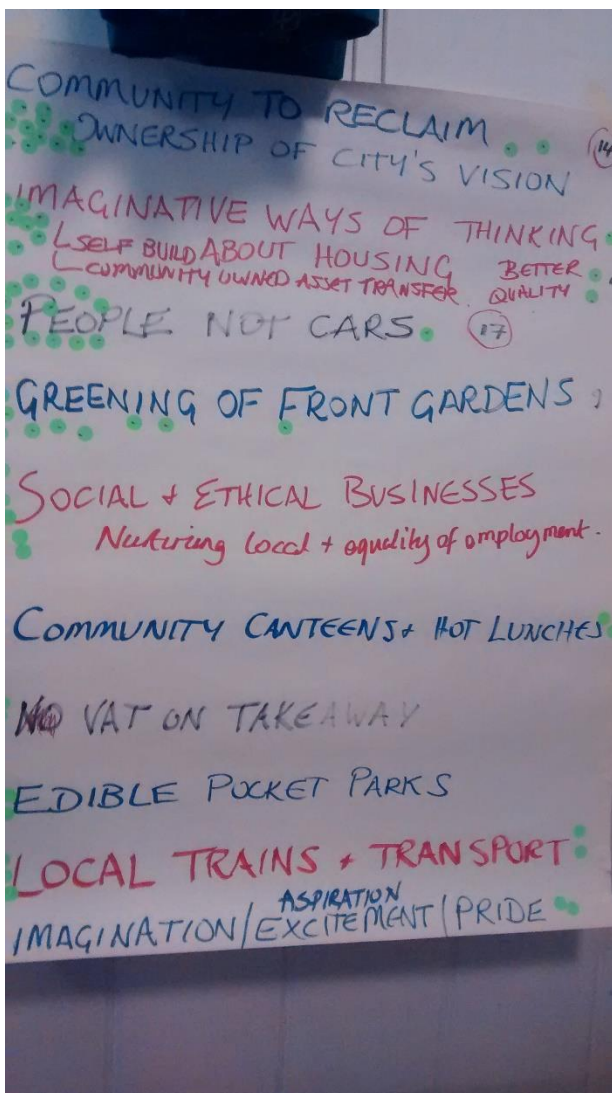 COMMUNITY TO RECLAIM
OWNERSHIP OF CITY'S VISION
14
IMAGINATIVE WAYS OF THINKING
ABOUT HOUSING
SELF BUILD
COMMUNITY OWNED ASSET TRANSFER
BETTER
QUALITY
PEOPLE NOT CARS
17
GREENING OF FRONT GARDENS
SOCIAL + ETHICAL BUSINESSES
Nurturing local + equality of employment.
COMMUNITY CANTEENS + HOT LUNCHES
NO VAT ON TAKEAWAY
EDIBLE POCKET PARKS
LOCAL TRAINS + TRANSPORT
ASPIRATION
IMAGINATION/EXCITEMENT/PRIDE